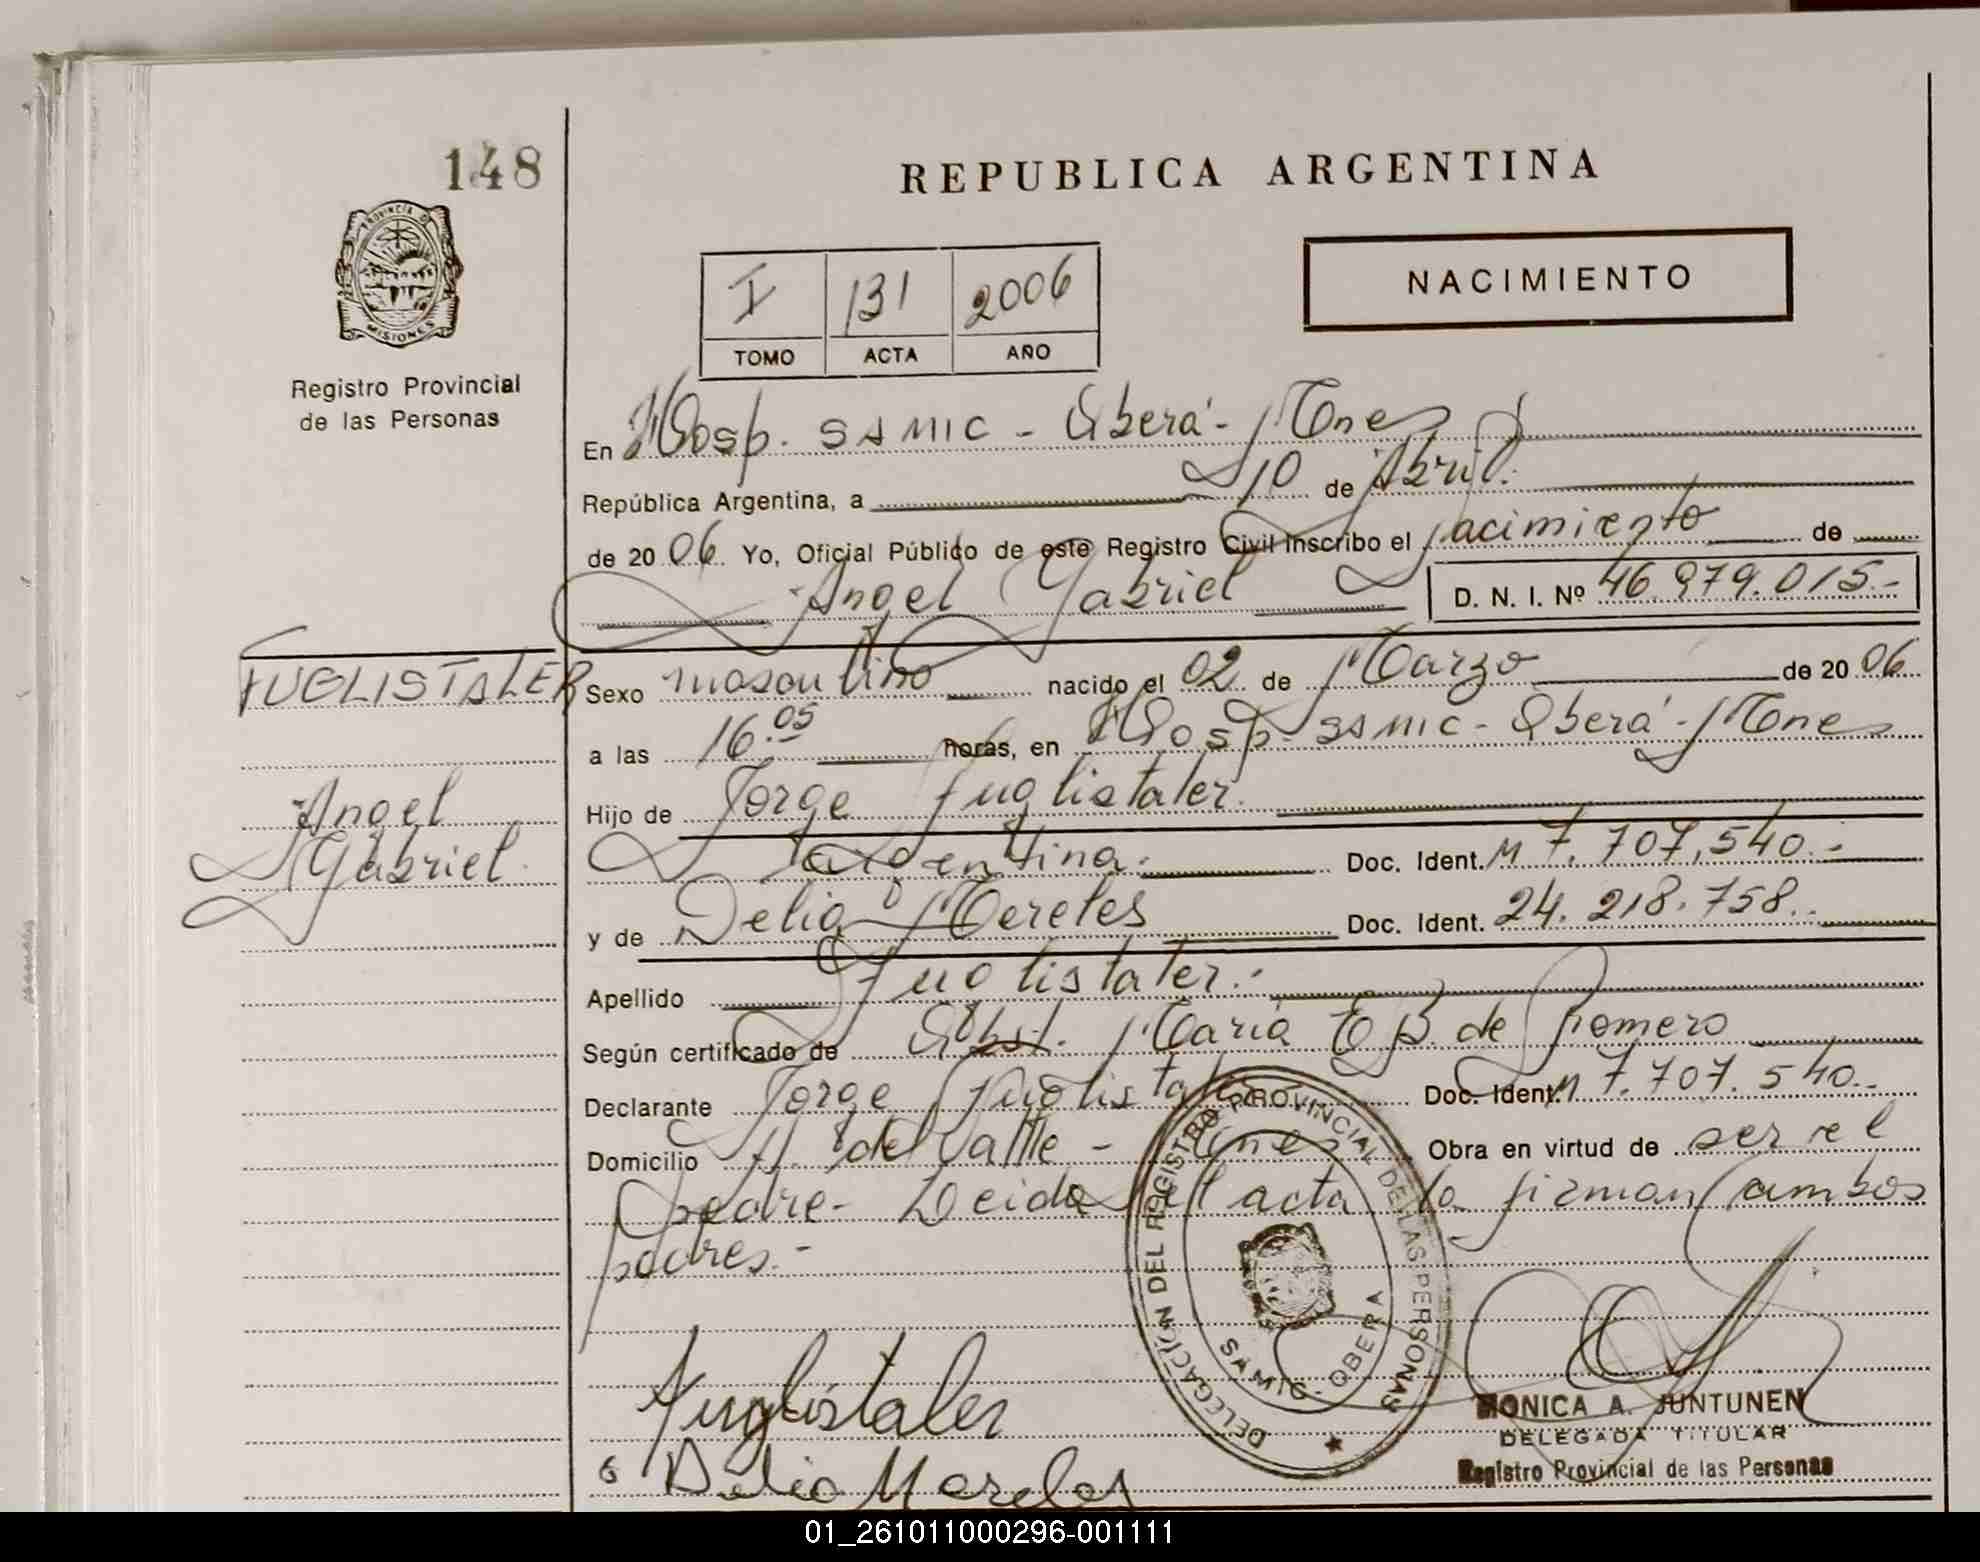 148
REPUBLICA ARGENTINA
PROVINCIA DE MISIONES
Registro Provincial
de las Personas
I 131 2006
TOMO ACTA AÑO
NACIMIENTO
En Hosp. SAMIC - Oberá - Mnes
República Argentina, a 10 de Abril.
de 20 06 Yo, Oficial Público de este Registro Civil inscribo el nacimiento de
Angel Gabriel D. N. I. Nº 46.979.015.-
FUGLISTALER
Angel
Gabriel.
Sexo masculino nacido el 02 de Marzo de 20 06
a las 16.05 horas, en Hosp. SAMIC - Oberá - Mnes
Hijo de Jorge Fuglistaler.
Argentina. Doc. Ident. M 7.707.540.-
y de Delia Mereles Doc. Ident. 24.218.758.
Apellido Fuglistaler.
Según certificado de Obst. Maria E B. de Romero
Declarante Jorge Fuglistaler Doc. Ident. M 7.707.540.-
Domicilio del Valle - Mnes Obra en virtud de ser el
padre - Leida el acta la firman ambos
padres.-
DELEGACIÓN DEL REGISTRO PROVINCIAL DE LAS PERSONAS
SAMIC - OBERA
Fuglistaler
Delia Mereles
MONICA A. JUNTUNEN
DELEGADA TITULAR
Registro Provincial de las Personas
01_261011000296-001111